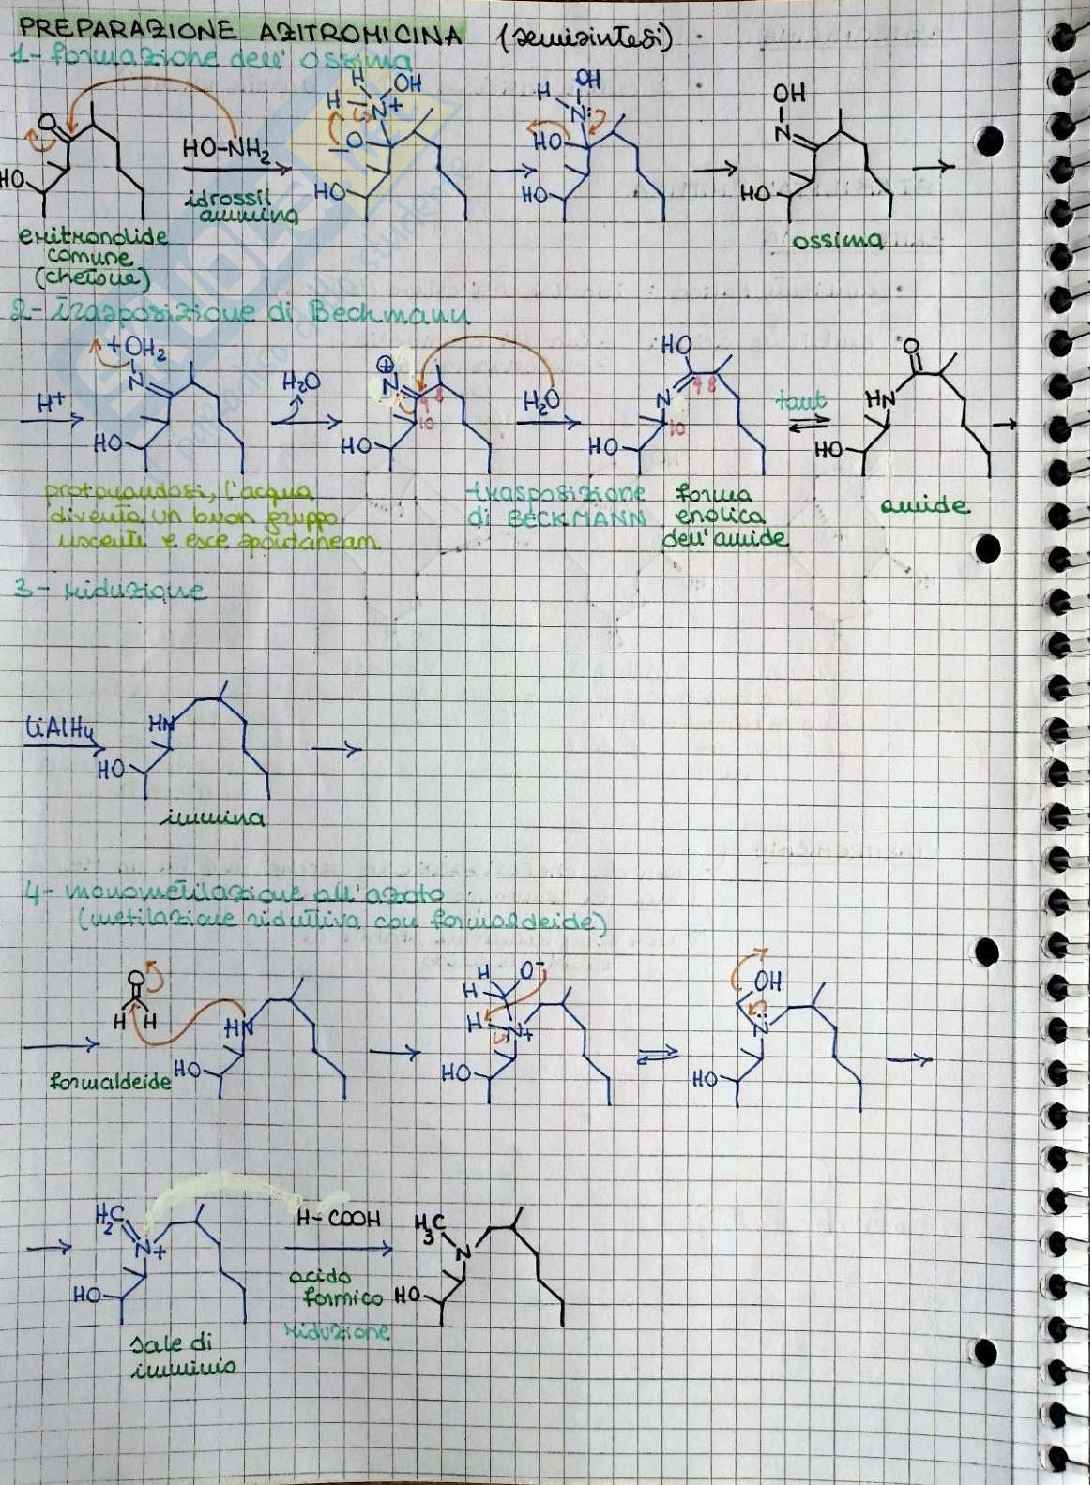 PREPARAZIONE AZITROMICINA (semisintesi)
1- formazione dell'ossima
H OH
H N+
O
HO
O
HO
HO-NH2
idrossil
ammina
eritronolide
comune
(chetone)
OH
H N:
HO
HO
OH
N
HO
ossima
2- Trasposizione di Beckmann
H+
+OH2
N
HO
H2O
⊕
N
9 8
10
HO
H2O
HO
N
9 8
10
HO
taut
O
HN
HO
protonandosi, l'acqua
diventa un buon gruppo
uscente e esce spontaneam
trasposizione
di BECKMANN
forma
enolica
dell'amide
amide
3- riduzione
LiAlH4
HN
HO
immina
4- monometilazione all'azoto
(metilazione riduttiva con formaldeide)
O
H H
formaldeide
HN
HO
H O-
H
H N+
HO
OH
N:
HO
H2C
N+
HO
sale di
imminio
H-COOH
acido
formico
riduzione
H3C
N
HO